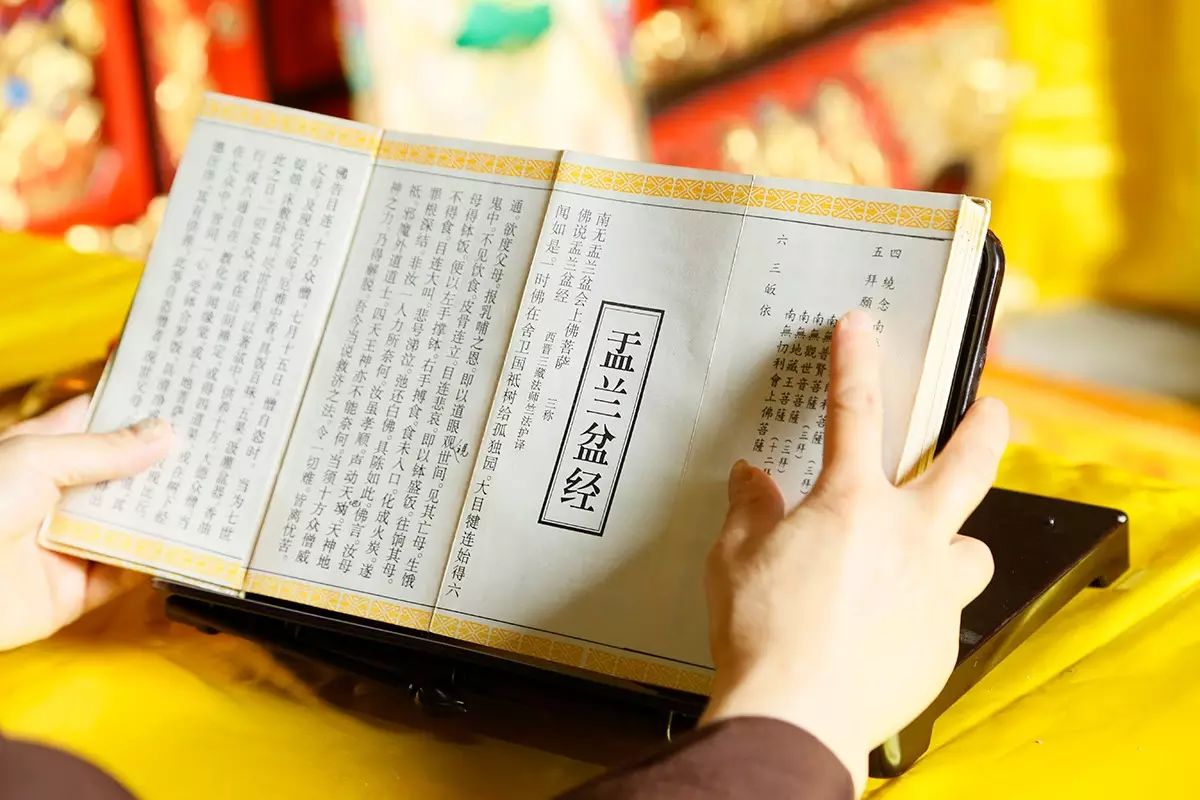 四 繞念南
五 拜願
南無普賢菩薩（三拜）
南無觀世音菩薩（三拜）
南無地藏王菩薩（三拜）
南無忉利會上佛菩薩（十二
六 三皈依
盂兰盆经
南无盂兰盆会上佛菩萨 三称
佛说盂兰盆经 西晋三藏法师竺法护译
闻如是。一时佛在舍卫国祇树给孤独园。大目犍连始得六
通。欲度父母。报乳哺之恩。即以道眼观世间。见其亡母。生饿
鬼中。不见饮食。皮骨连立。目连悲哀。即以钵盛饭。往饷其母。
母得钵饭。便以左手撑钵。右手搏食。食未入口。化成火炭。遂
不得食。目连大叫。悲号涕泣。驰还白佛。具陈如此。佛言。汝母
罪根深结。非汝一人力所奈何。汝虽孝顺。声动天地。天神地
祇。邪魔外道道士。四天王神。亦不能奈何。当须十方众僧威
神之力。乃得解脱。吾今当说救济之法。令一切难。皆离忧苦。
佛告目连。十方众僧。七月十五日。僧自恣时。当为七世
父母。及现在父母。厄难中者。具饭百味。五果。汲灌盆器。香油
锭烛。床敷卧具。尽世甘美。以著盆中。供养十方。大德众僧。当
此之日。一切圣众。或在山间禅定。或得四道果。或在树下经
行。或六通自在。教化声闻缘觉。或十地菩萨
在大众中。皆同一心。受钵和